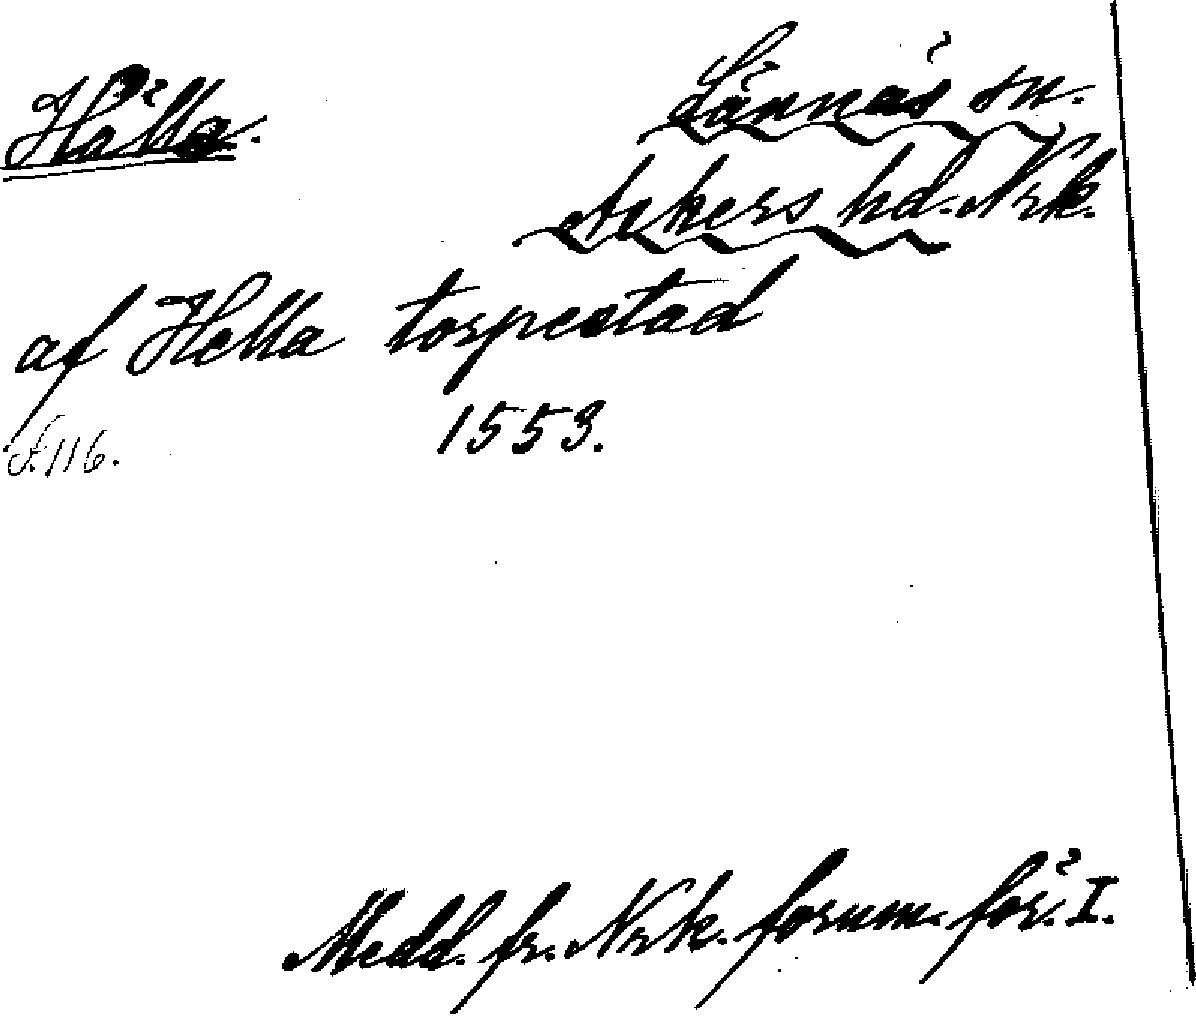 Hälla.
Lännäs sn.
Askers hd. Nrk.
af Hella torpestad
1553.
s. 116.
Medd. fr. Nrk. fornm. för. I.